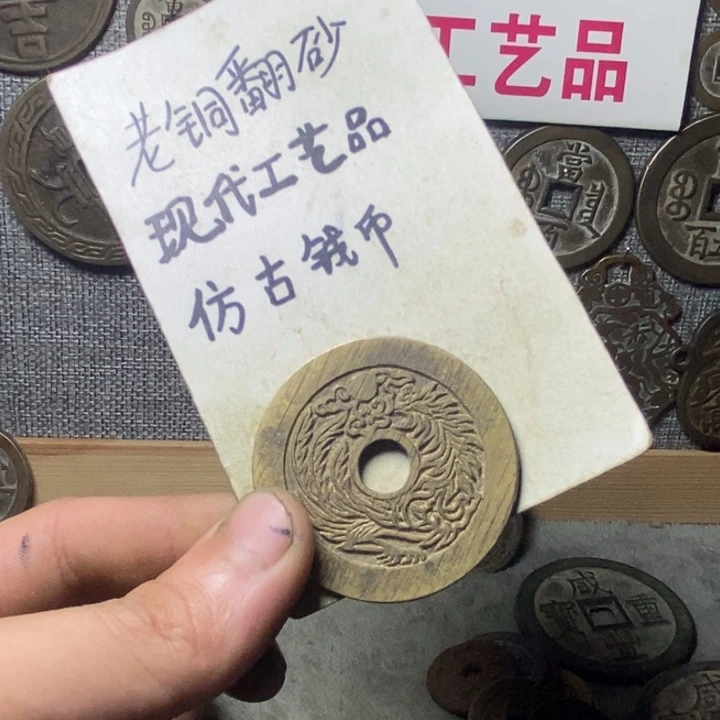 工艺品
老铜翻砂
现代工艺品
仿古钱币
當
百
百
咸
重
寶